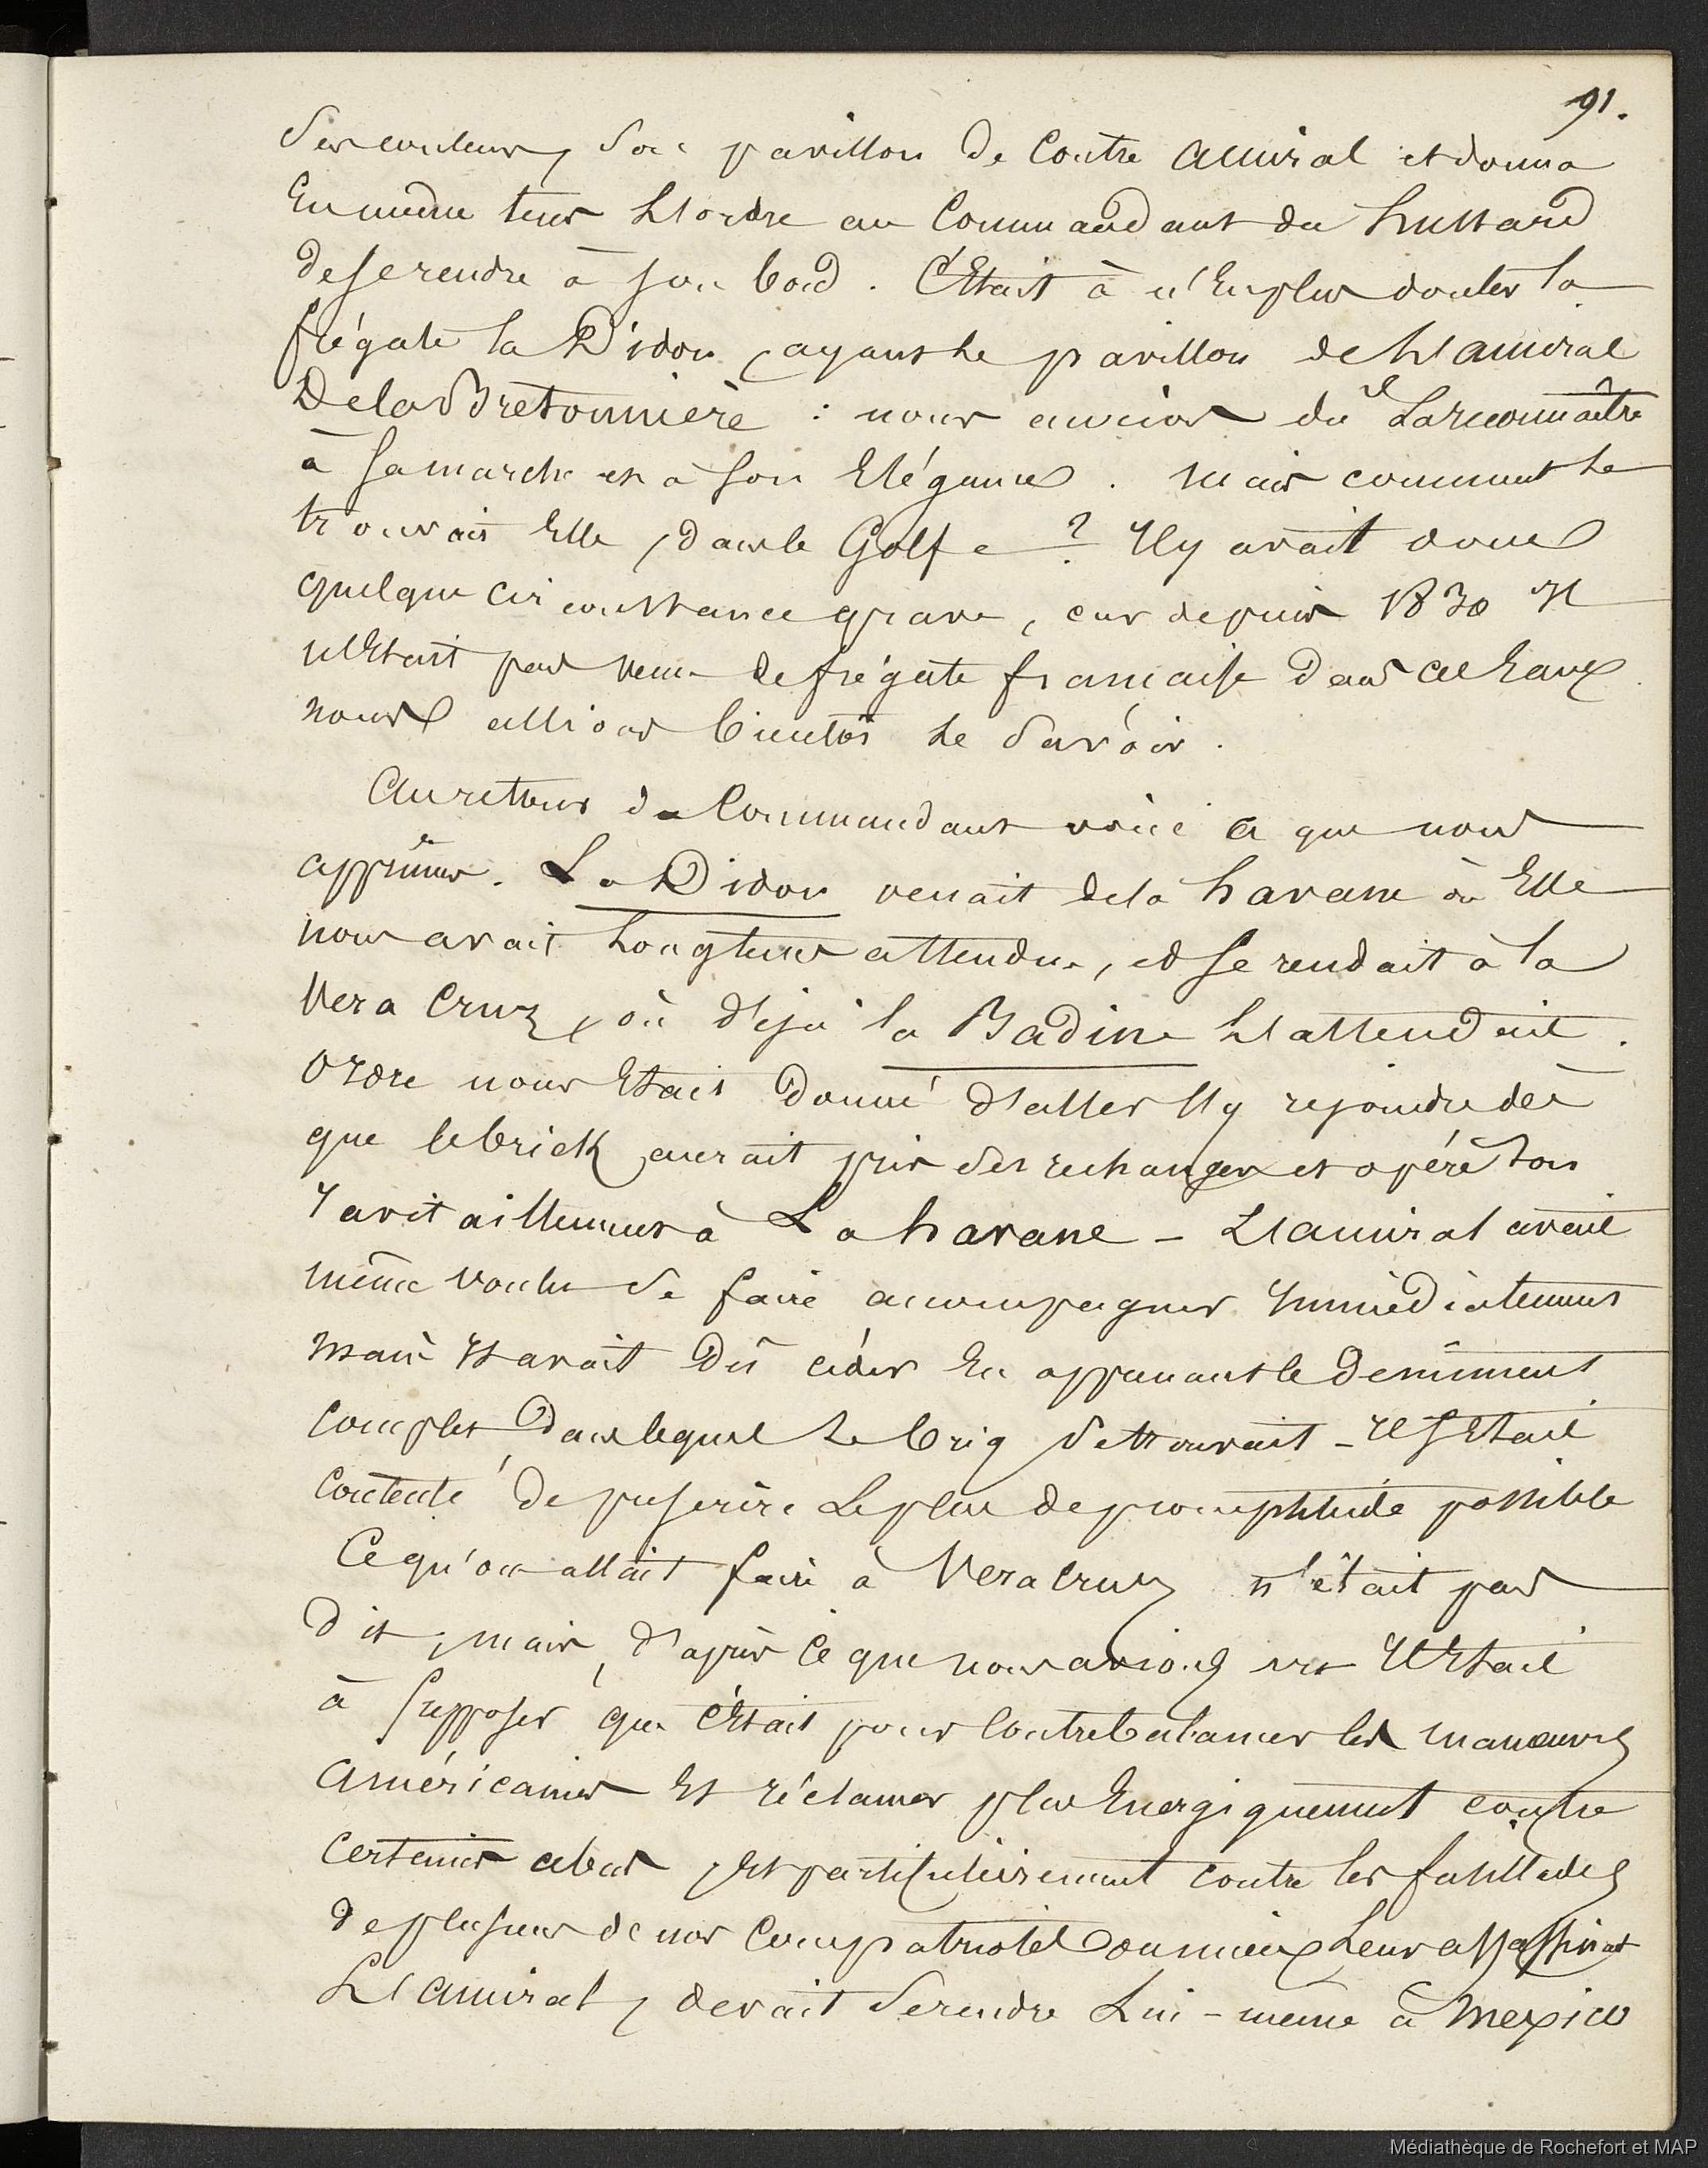 91.
Ses couleurs, Son pavillon de Contre amiral et donna
En même tems L'ordre au Commandant du hussard
de se rendre à son bord. C'Etait à n'En plus douter la
frégate la Didon, ayant le pavillon de L'amiral
De la Bretonnière : nous aurions dû La reconnaître
à sa marche et à son Elégance. Mais comment se
trouvait Elle, dans le Golfe ? Il y avait donc
quelque circonstance grave, car depuis 1830 Il
n'Etait pas venu de frégate française dans ces Eaux.
nous allions bientôt le Savoir.
Au retour du Commandant voici ce que nous
apprîmes. La Didon venait de la havane où Elle
nous avait Longtems attendu, et se rendait à la
Vera Cruz, où déjà la Badine L'attendait.
Ordre nous Etait donné d'aller l'y rejoindre dès
que le brick aurait pris des rechanges et opéré Son
ravitaillement à La havane - L'amiral avait
même voulu Se faire accompagner Immédiatement
mais Il avait dû céder En apprenant le denument
complet dans lequel Le brig Se trouvait - Il s'Etait
contenté de prescrire Le plus de promptitude possible
Ce qu'on allait faire à Vera Cruz n'était pas
dit, mais, d'après ce que nous avions vu Il Etait
à supposer que c'Etait pour Contrebalancer les manœuvres
américaines Et réclamer plus Energiquement contre
certains abus, Et particulièrement contre les fusillades
de plusieurs de nos compatriotes ou mieux Leur assassinat
L'amiral, devait Se rendre Lui-même à Mexico
Médiathèque de Rochefort et MAP